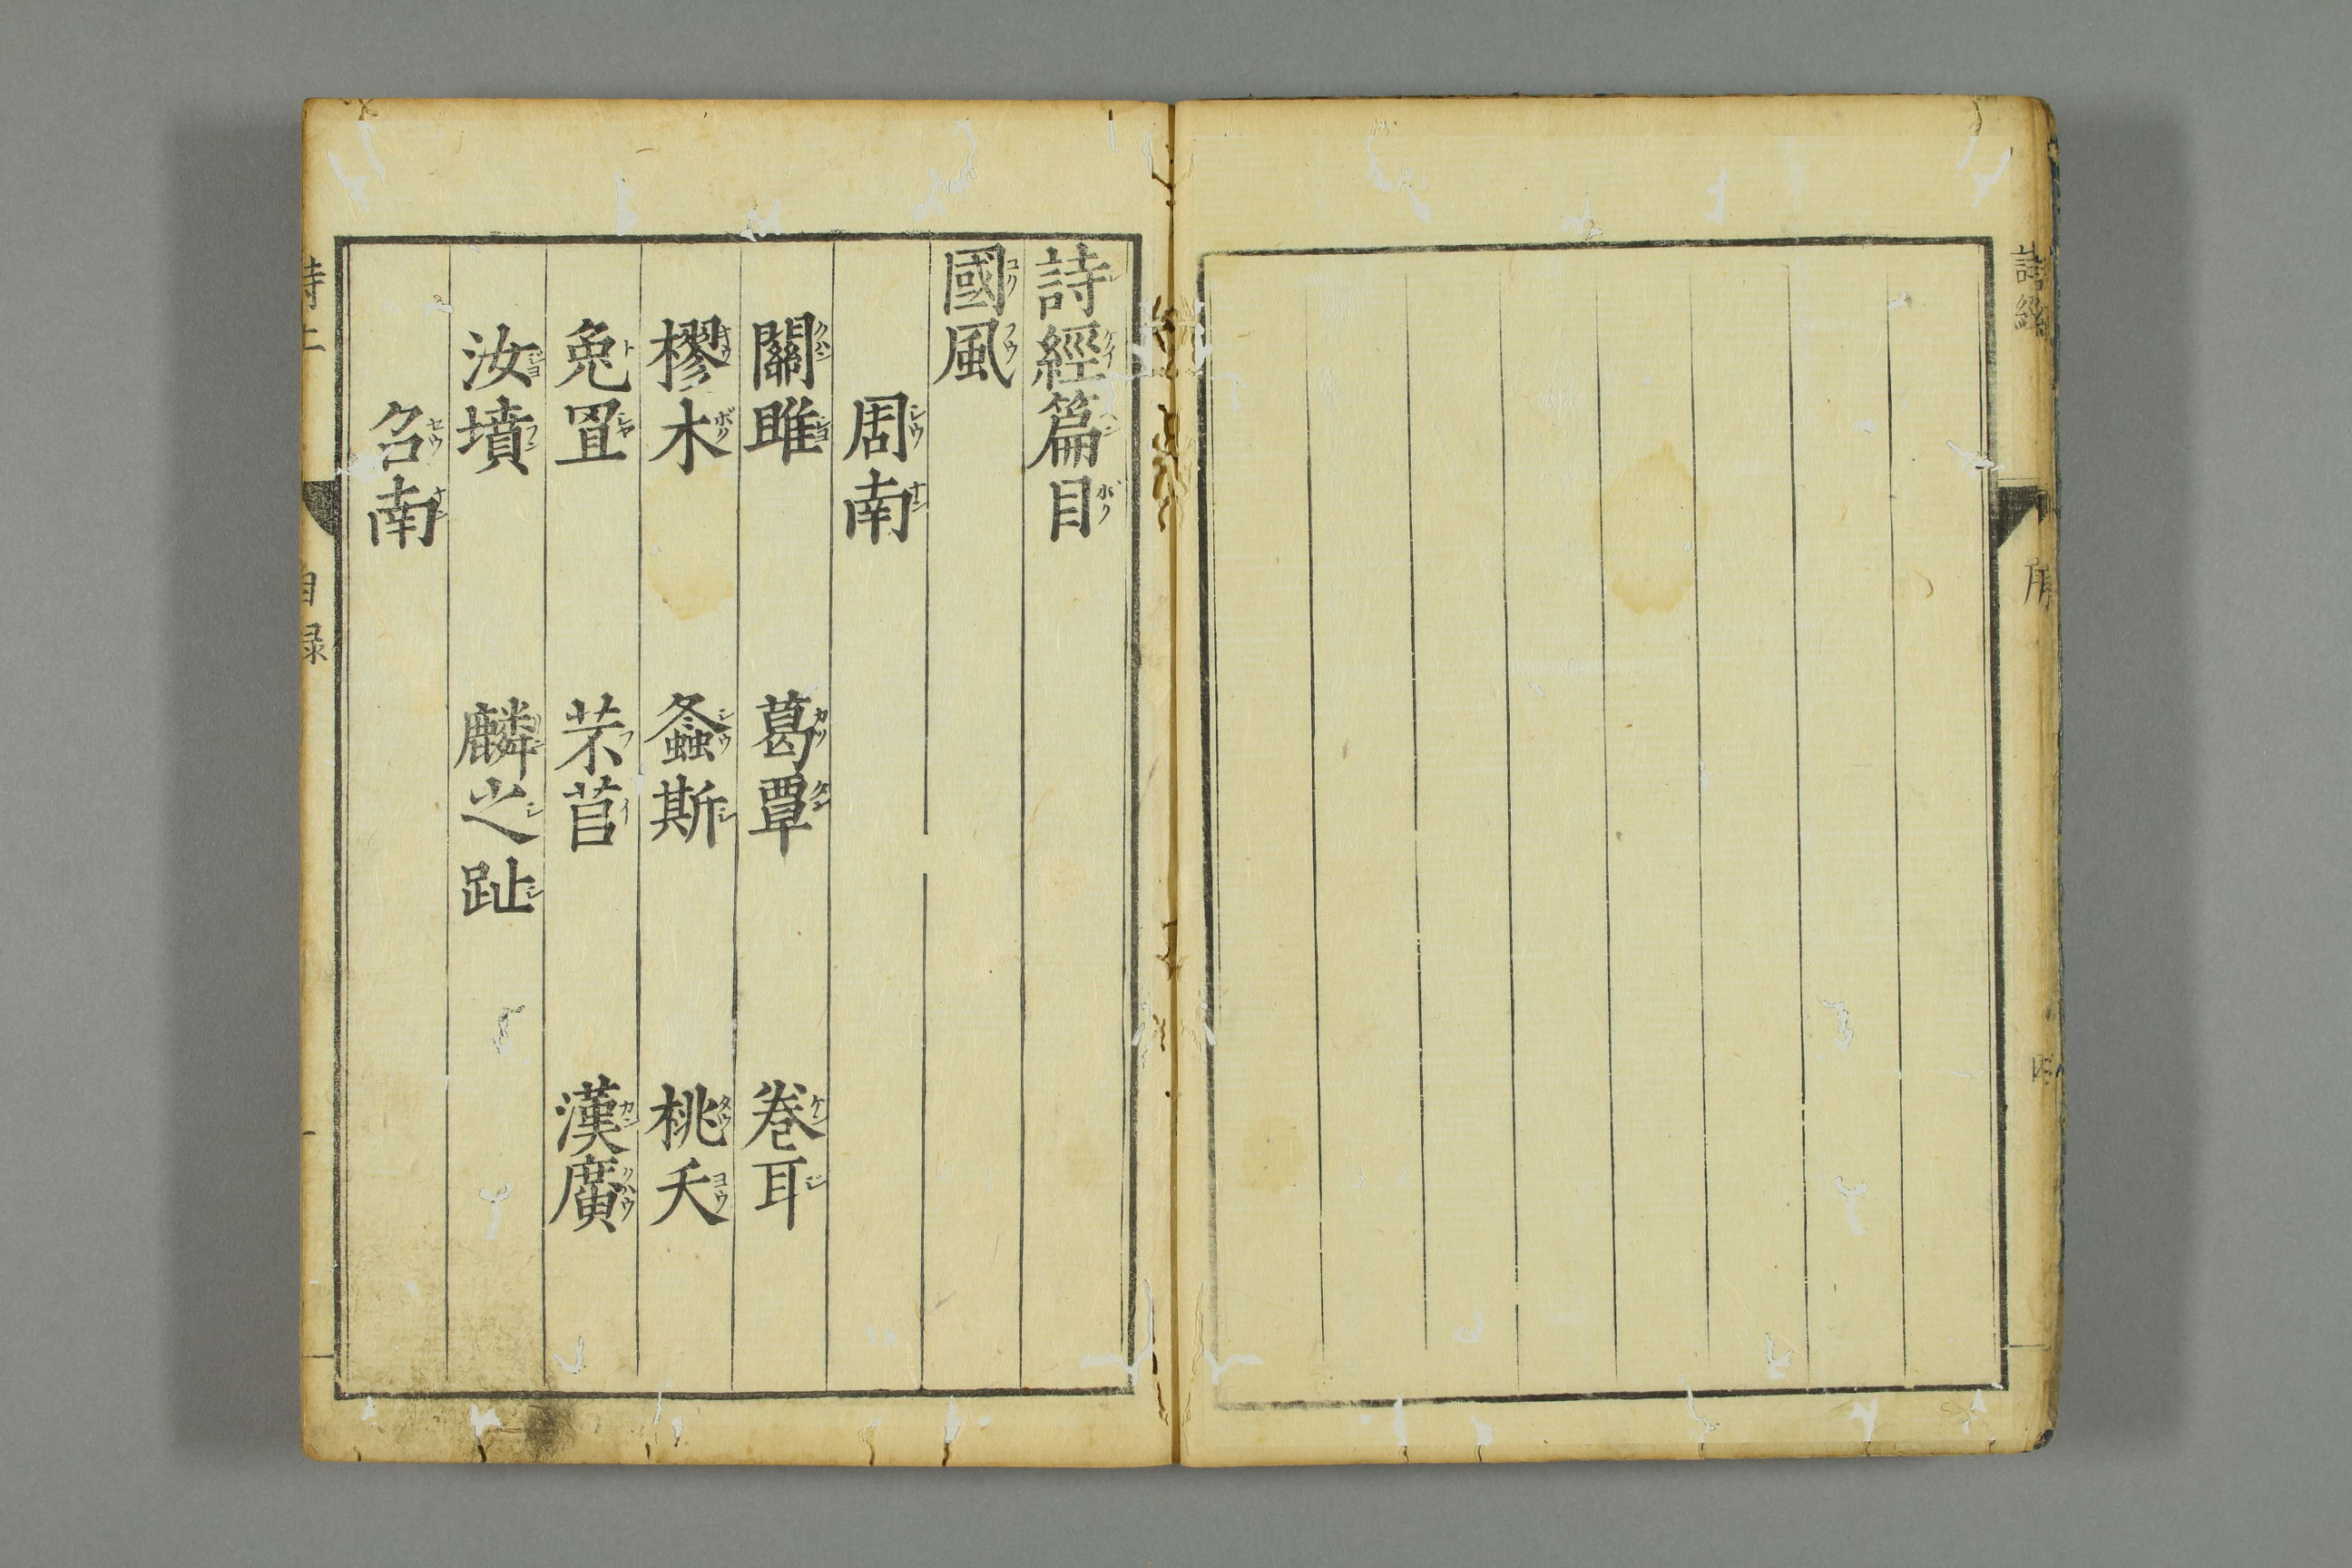 詩經
序
詩經篇目
國風
周南
關雎 葛覃 卷耳
樛木 螽斯 桃夭
兔罝 芣苢 漢廣
汝墳 麟之趾
召南
目録